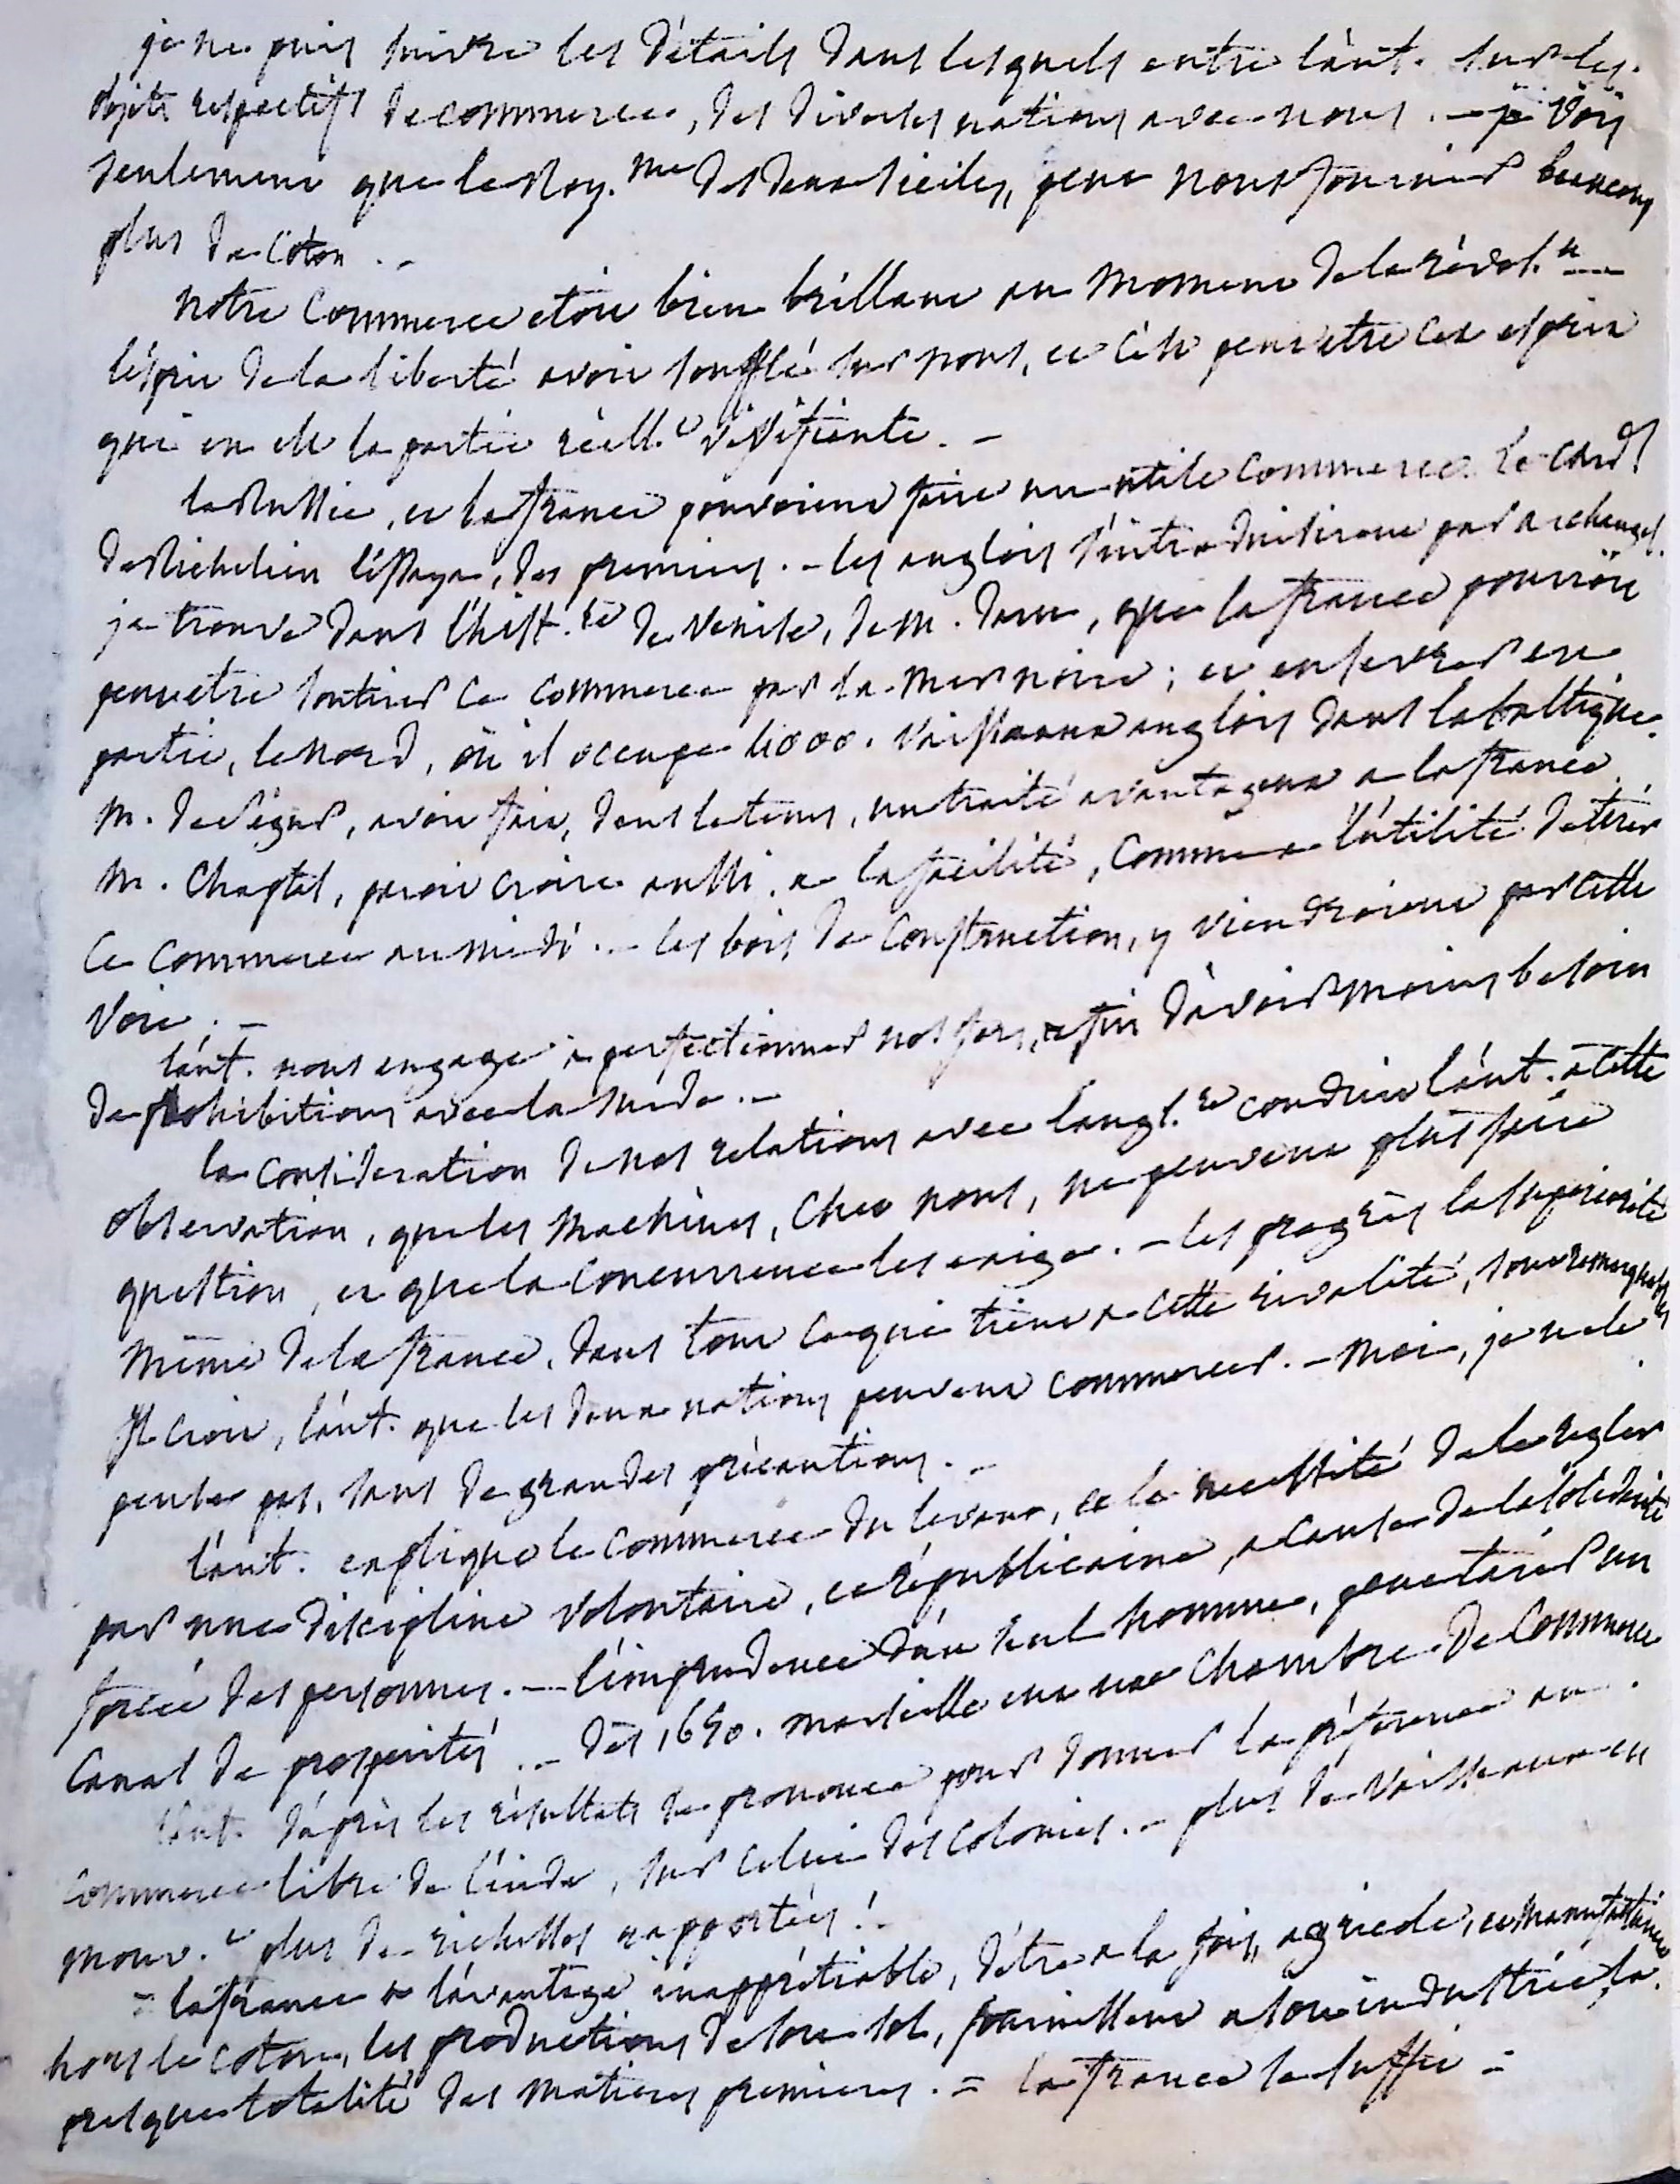 je ne puis suivre les détails dans lesquels entre l'aut. sur les
objets respectifs de commerce, des diverses nations avec nous. — je vois
seulement que le Roy.me des deux siciles, peut nous fournir beaucoup
plus de coton. —
notre commerce etoit bien brillant au moment de la révol.n —
l'esprit de la liberté avoit soufflé sur nous, et c'est peut etre cet esprit
qui en est la partie réell.t vivifiante. —
la Russie, et la france pouvoient faire un utile commerce. le card.l
de Richelieu l'essaya, des premiers. — les anglois s'introduisirent par archangel.
je trouve dans l'hist.re de venise, de m. daru, que la france pourroit
peut etre soutirer ce commerce par la mer noire; et en sevrer en
partie, le nord, où il occupe 4000. vaisseaux anglois dans la baltique.
m. de ségur, avoit fait, dans le tems, un traité avantageux a la france.
m. Chaptal, paroit croire aussi, a la facilité, comme a l'utilité d'attirer
ce commerce au midi. — les bois de construction, y viendroient par cette
voie. —
l'aut. nous engage a perfectionner nos fers, afin d'avoir moins besoin
de prohibitions avec la suede. —
la consideration de nos relations avec l'angl.re conduit l'aut. a cette
observation, que les machines, chez nous, ne peuvent plus faire
question, et que la concurrence les exige. — les progrès la supériorité
même de la france, dans tout ce qui tient a cette rivalité, sont remarquables
Il croit, l'aut. que les deux nations peuvent commercer. — moi, je ne le
pense pas, sans de grandes précautions. —
l'aut. explique le commerce du levant, et la necessité de le regler
par une discipline volontaire, et républicaine, a cause de la solidarité
forcée des personnes. — l'imprudence d'un seul homme, peut tarir un
canal de prospérités. — dès 1650. marseille eut une chambre de commerce
l'aut. d'après les résultats se prononce pour donner la préférence au
commerce libre de l'inde, sur celui des colonies. — plus de vaisseaux en
mouv.t plus de richesses rapportées! —
= la france a l'avantage inappréciable, d'être a la fois, agricole, et manufacturière
hors le coton, les productions de son sol, fournissent a son industrie la
presque totalité des matieres premieres. = la france se suffit =